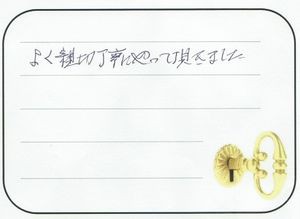 よく親切丁寧にやって頂きました